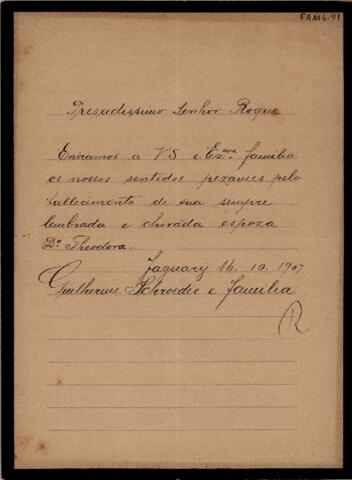 FAM 6.41
Presadissimo Senhor Roque
Enviamos a VS e Exma. familia
os nossos sentidos pezames pelo
fallecimento de sua sempre
lembrada e chorada espoza
Da. Theodora.
Jaguary 16. 10. 1907
Guilherme Schroeder e familia
R